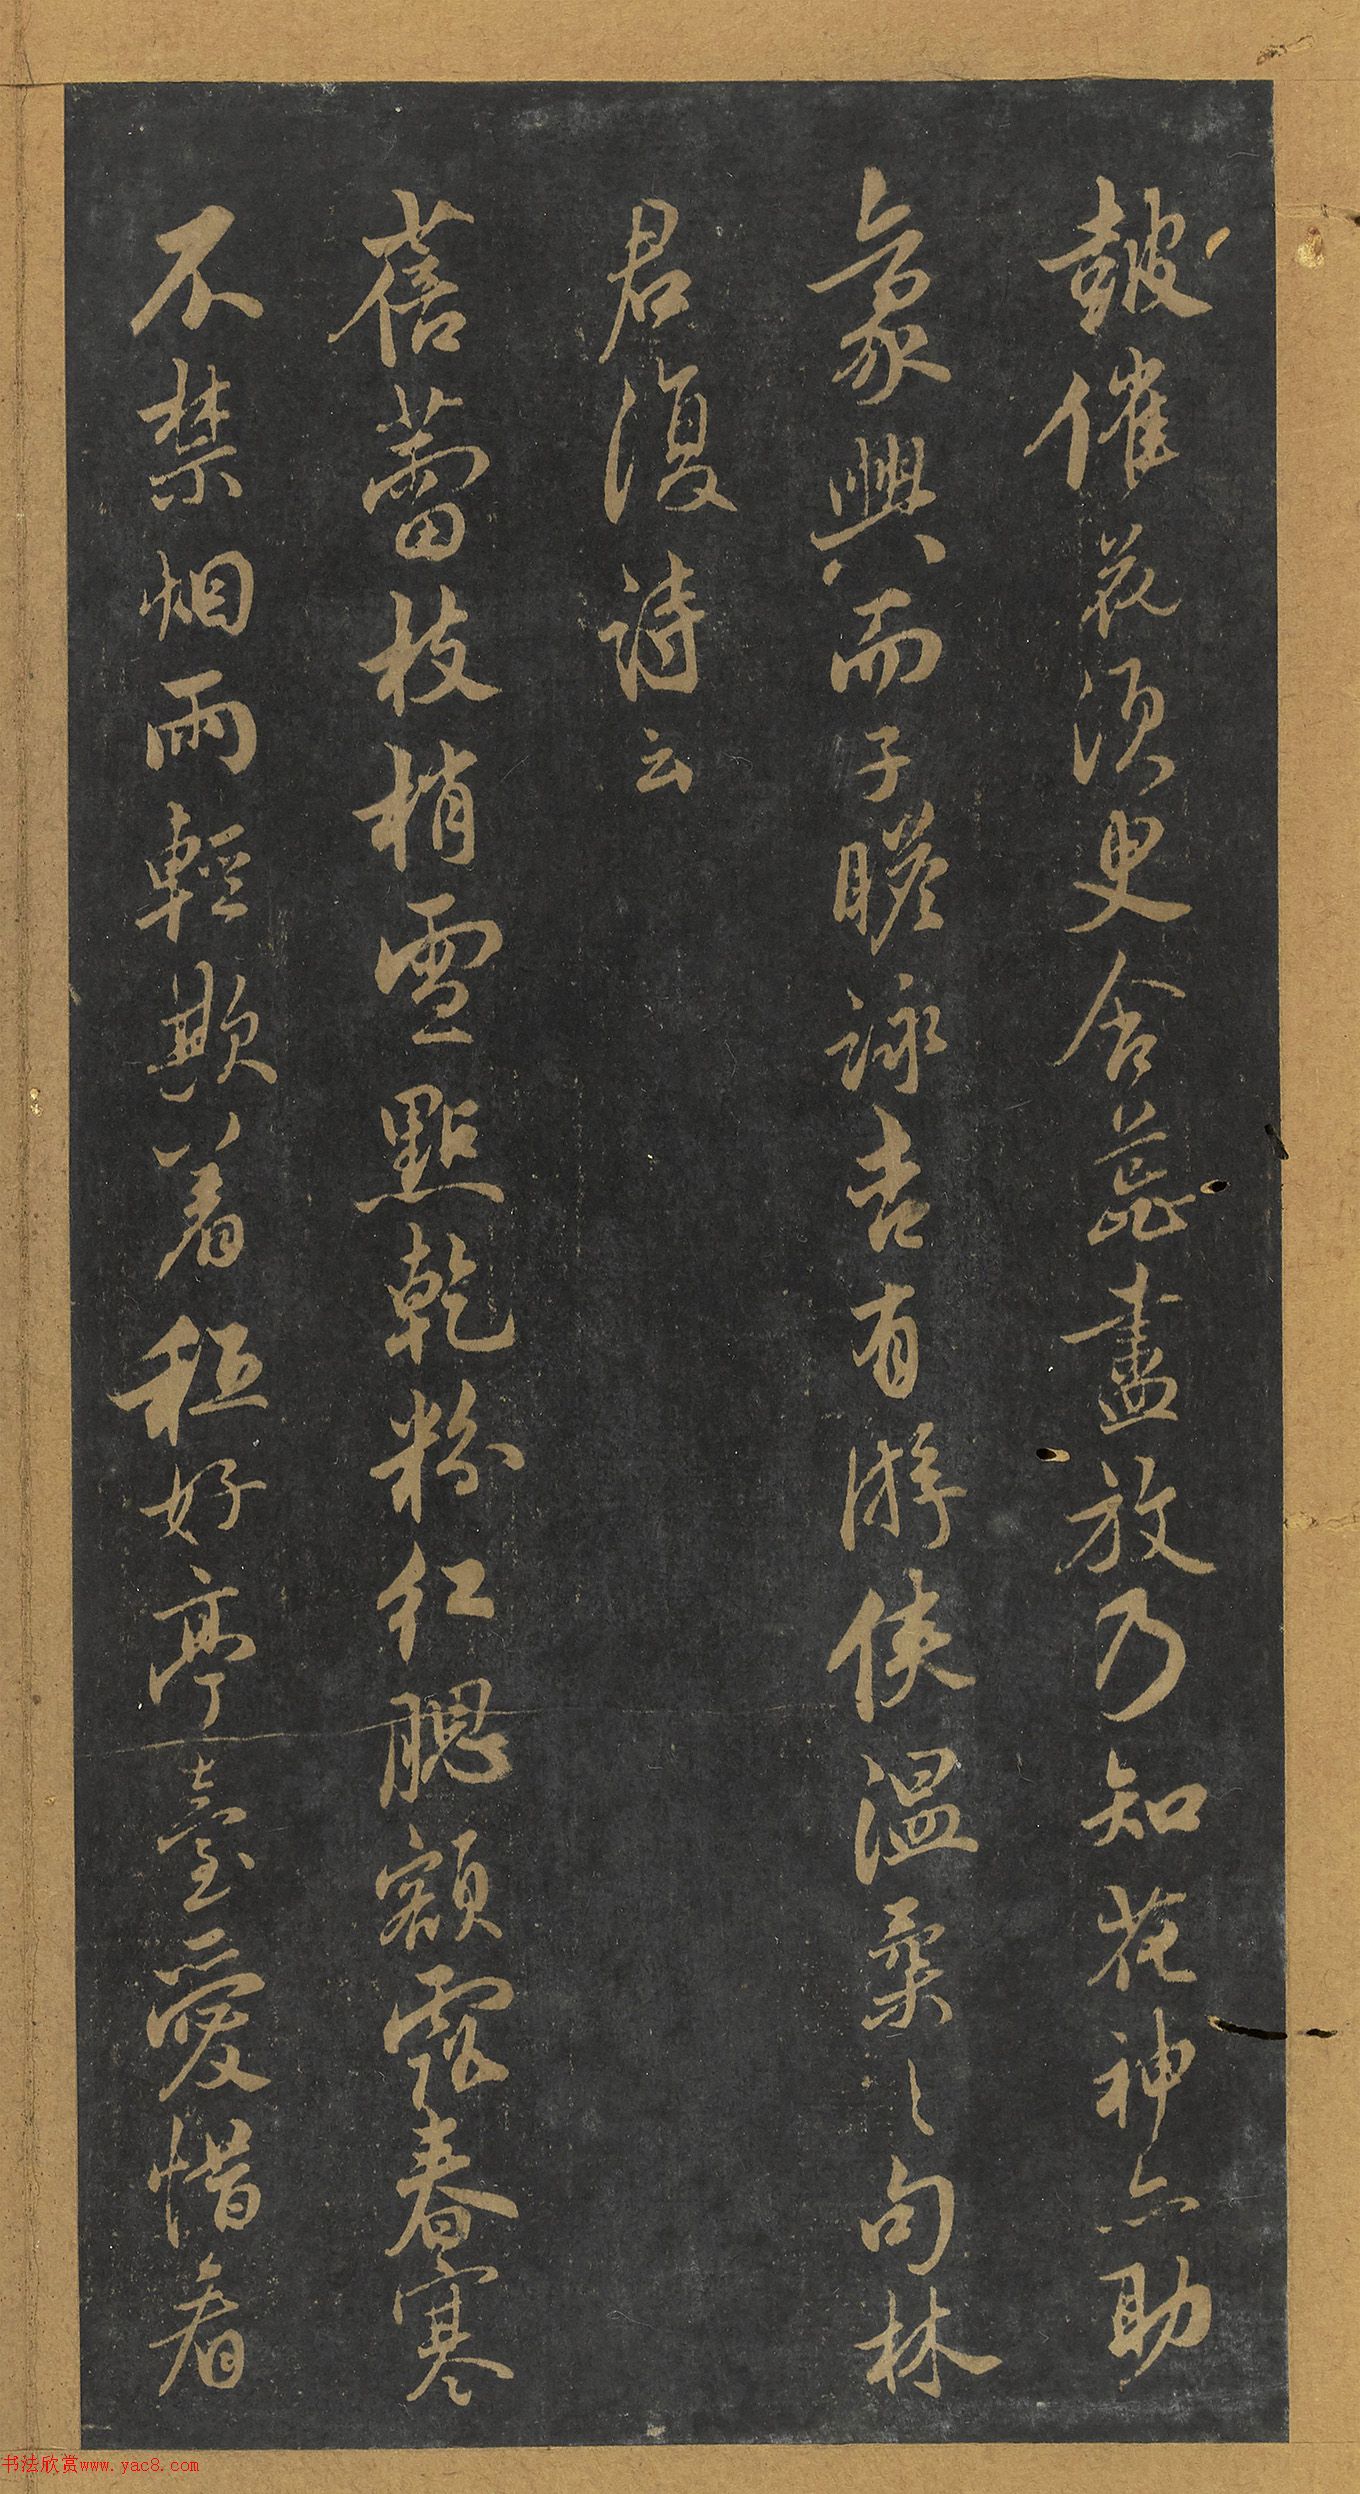 皷催花須臾含蕊盡放乃知花神亦助
象興而子瞻詠杏有游俠溫柔之句林
君復詩云
蓓蕾枝梢雪點乾粉紅腮額露春寒
不禁烟雨輕欺着秪好亭臺愛惜看
书法欣赏www.yac8.com